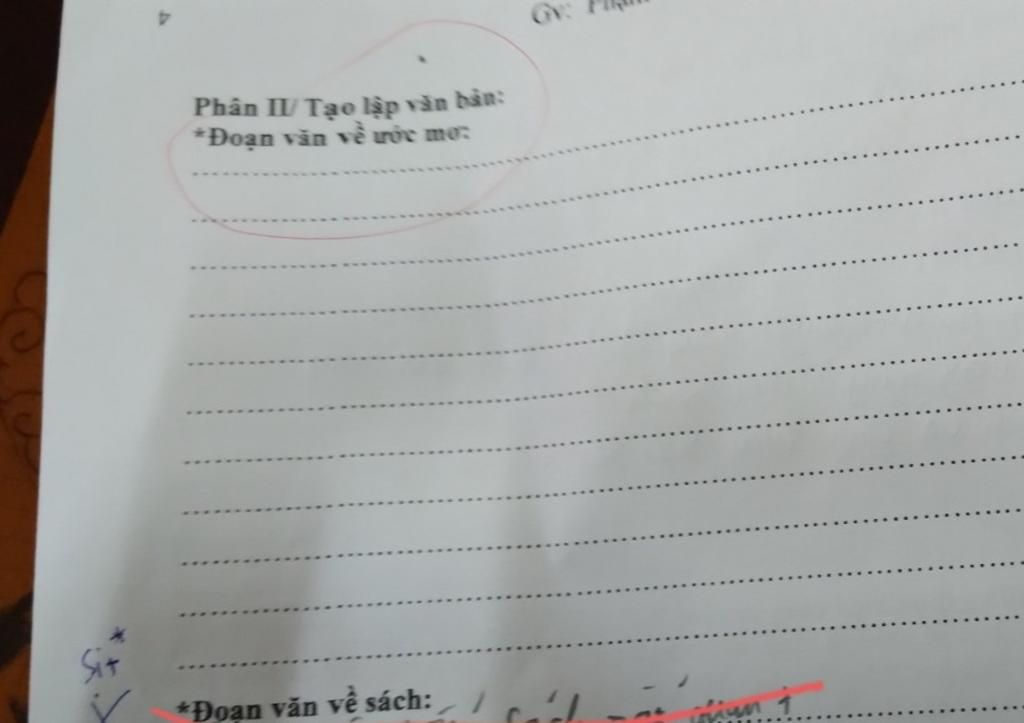 4
Gv:
Phần II/ Tạo lập văn bản:
*Đoạn văn về ước mơ:
*Đoạn văn về sách: